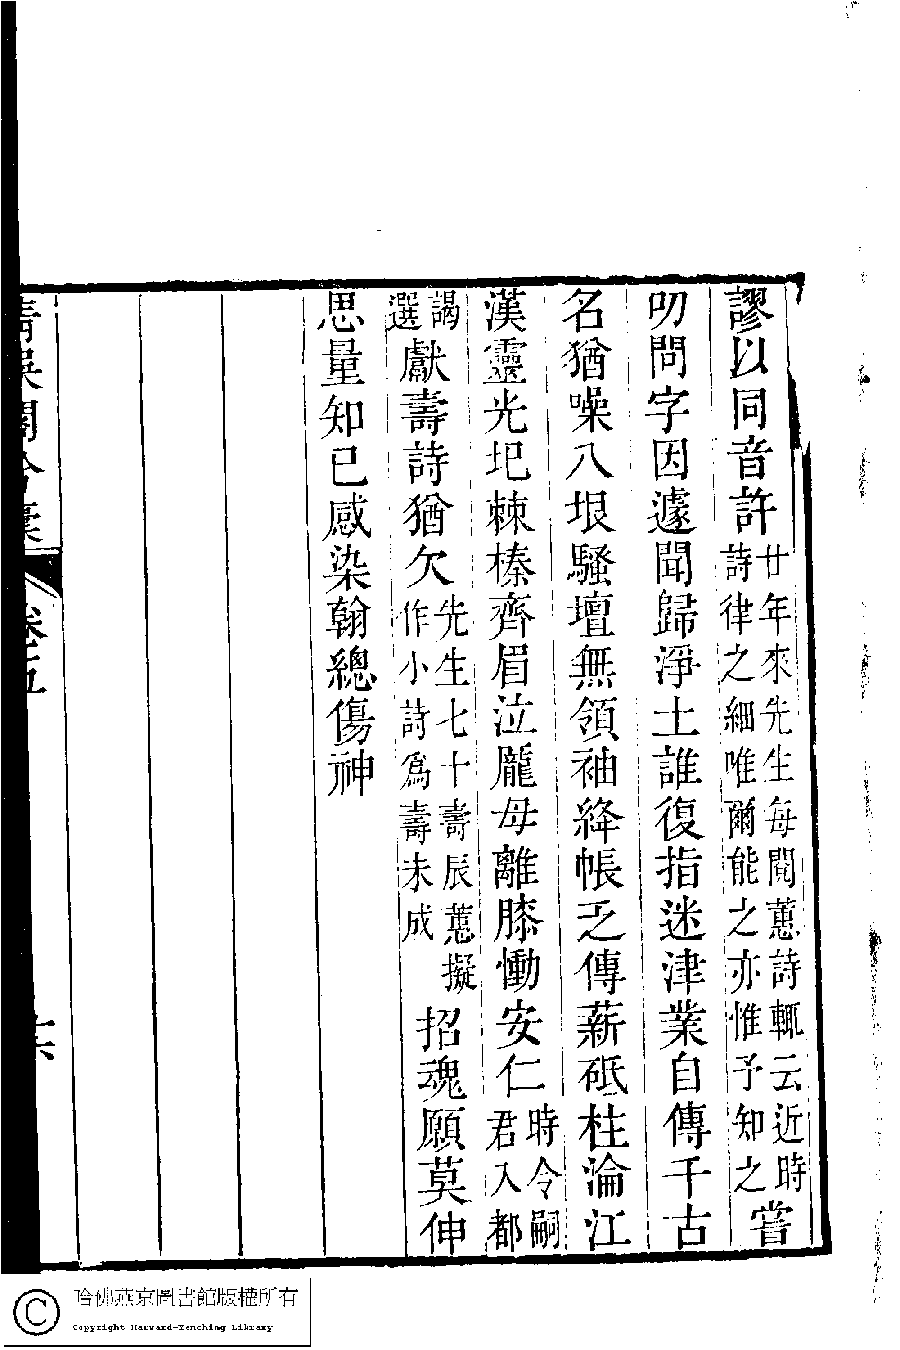 謬以同音許廿年來先生每閱蕙詩輒云近時詩律之細唯爾能之亦惟予知之嘗
叨問字因遽聞歸淨土誰復指迷津業自傳千古
名猶噪八垠騷壇無領袖絳帳乏傳薪砥柱淪江
漢靈光圯棘榛齊眉泣龐母離膝慟安仁時令嗣君入都
謁選獻壽詩猶欠先生七十壽辰蕙擬作小詩爲壽未成招魂願莫伸
思量知己感染翰總傷神
卷五
哈佛燕京圖書館版權所有
Copyright Harvard-Yenching Library